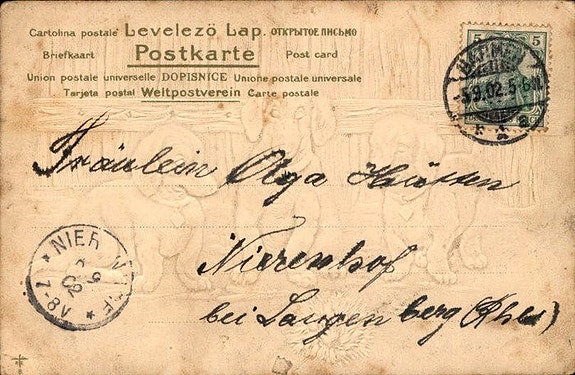 Cartolina postale Levelező Lap. ОТКРЫТОЕ ПИСЬМО
Briefkaart Postkarte Post card
Union postale universelle DOPISNICE Unione postale universale
Tarjeta postal Weltpostverein Carte postale
5 5
BARMEN
5.9.02.5-6N
Fräulein Olga Hütten
Nierenhof
bei Langenberg (Rhld)
NIER
02
7-8V